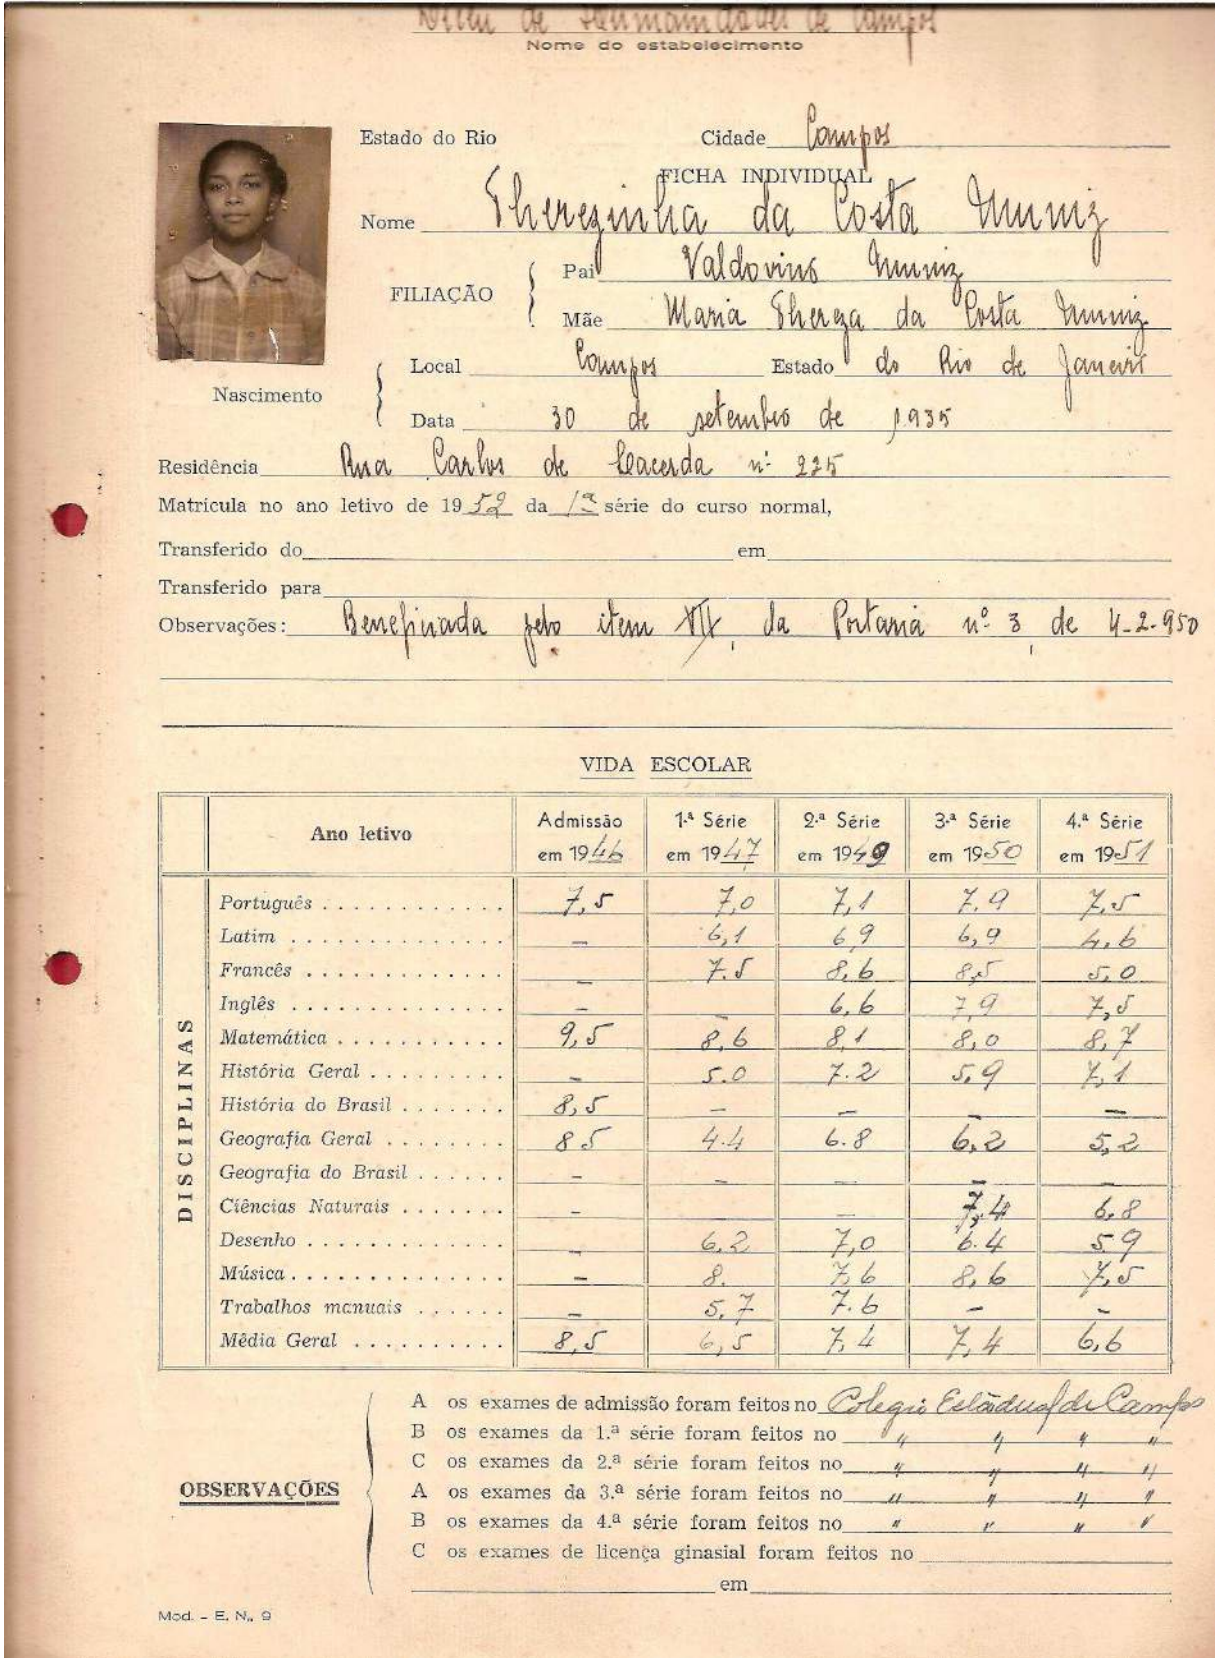 Liceu de Humanidades de Campos
Nome do estabelecimento
Estado do Rio Cidade Campos
FICHA INDIVIDUAL
Nome Therezinha da Costa Muniz
FILIAÇÃO
Pai Valdovino Muniz
Mãe Maria Thereza da Costa Muniz
Nascimento
Local Campos Estado do Rio de Janeiro
Data 30 de setembro de 1.935
Residência Rua Carlos de Lacerda nº 225
Matrícula no ano letivo de 1952 da 1ª série do curso normal,
Transferido do em
Transferido para
Observações: Beneficiada pelo item da Portaria nº 3, de 4-2-950
VIDA ESCOLAR
Ano letivo Admissão em 1946 1.ª Série em 1947 2.ª Série em 1949 3.ª Série em 1950 4.ª Série em 1951
DISCIPLINAS
Português 7,5 7,0 7,1 7.9 7,5
Latim – 6,1 6 9 6,9 4,6
Francês – 7.5 8,6 8,5 5,0
Inglês – – 6,6 7,9 7,5
Matemática 9,5 8,6 8,1 8,0 8,7
História Geral – 5.0 7.2 5,9 7,1
História do Brasil 8,5 – – – –
Geografia Geral 8 5 4.4 6.8 6,2 5,2
Geografia do Brasil – – – – –
Ciências Naturais – – 7,4 6,8
Desenho – 6,2 7,0 6.4 5 9
Música – 8. 7,6 8,6 7,5
Trabalhos manuais – 5,7 7.6 – –
Média Geral 8,5 6,5 7,4 7,4 6,6
OBSERVAÇÕES
A os exames de admissão foram feitos no Colegio Estadual de Campos
B os exames da 1.ª série foram feitos no " " " "
C os exames da 2.ª série foram feitos no " " " "
A os exames da 3.ª série foram feitos no " " " "
B os exames da 4.ª série foram feitos no " " " "
C os exames de licença ginasial foram feitos no
em
Mod. - E. N., 9